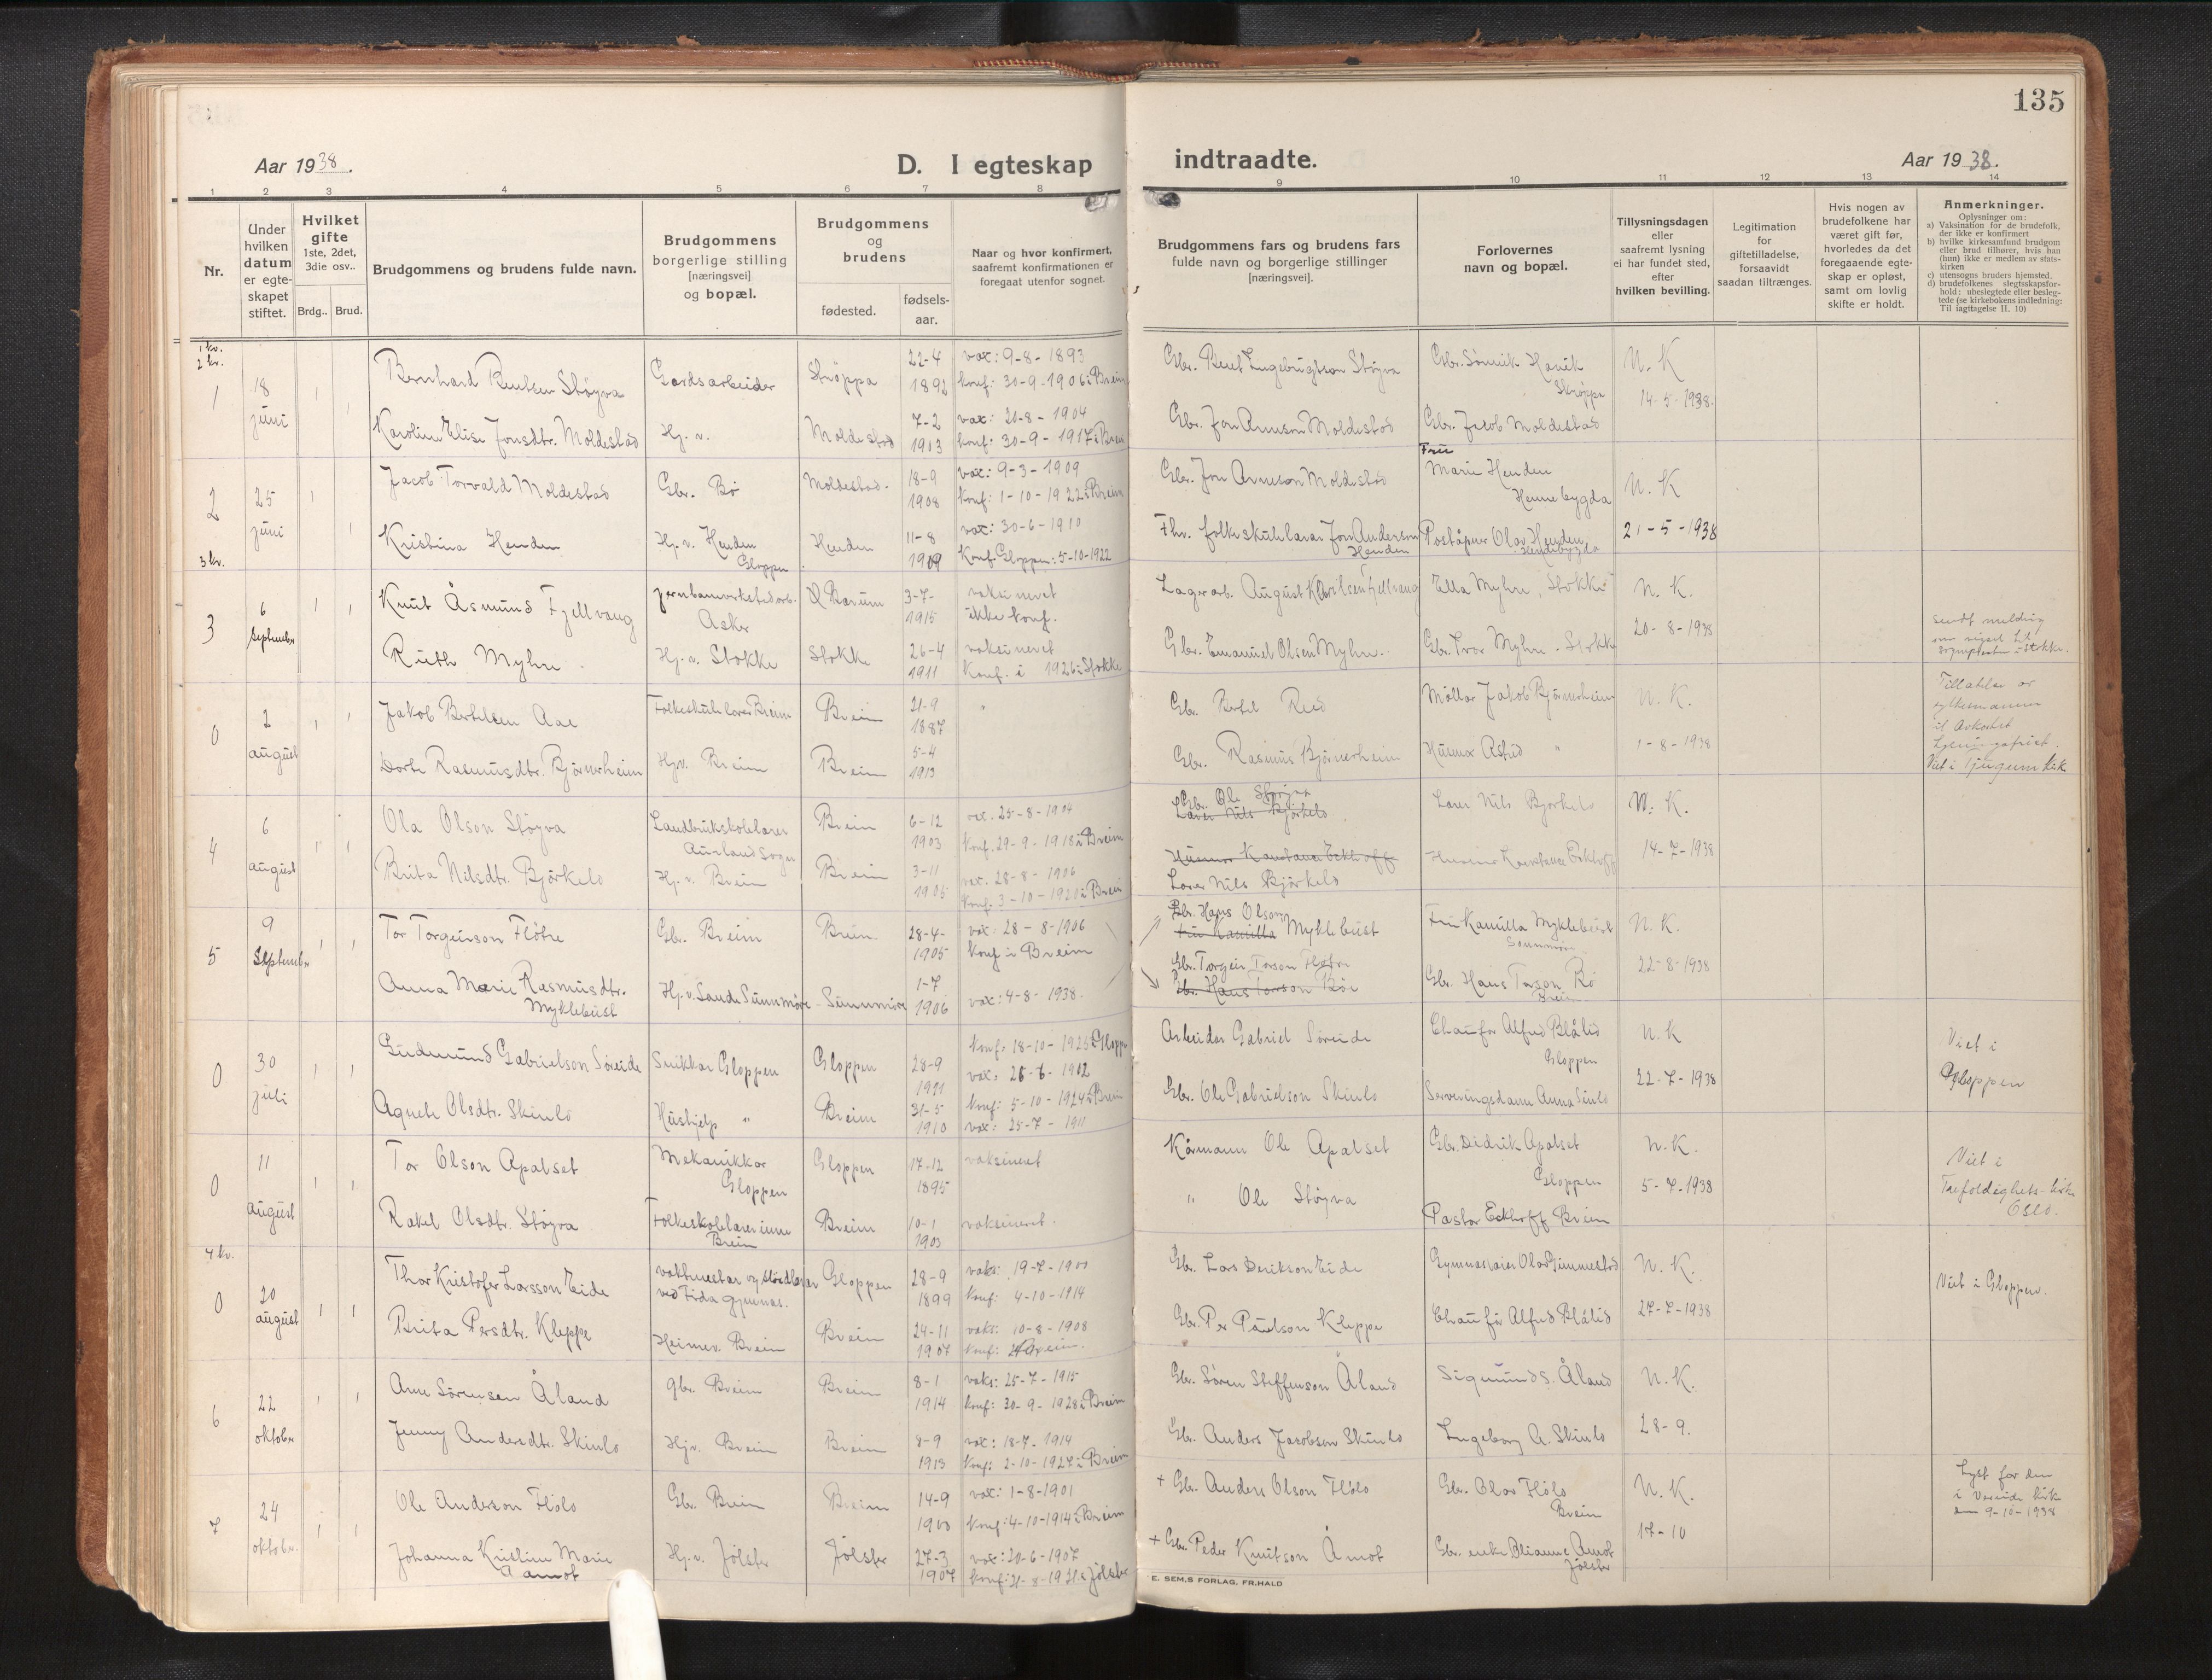 135
Aar 1938.
D. I egteskap indtraadte.
Aar 1938.
1 2 3 4 5 6 7 8 9 10 11 12 13 14
Nr.
Under hvilken datum er egteskapet stiftet.
Hvilket gifte 1ste, 2det, 3die osv..
Brdg.. Brud.
Brudgommens og brudens fulde navn.
Brudgommens borgerlige stilling [næringsvei] og bopæl.
Brudgommens og brudens
fødested.
fødselsaar.
Naar og hvor konfirmert, saafremt konfirmationen er foregaat utenfor sognet.
Brudgommens fars og brudens fars fulde navn og borgerlige stillinger [næringsvei].
Forlovernes navn og bopæl.
Tillysningsdagen eller saafremt lysning ei har fundet sted, efter hvilken bevilling.
Legitimation for giftetilladelse, forsaavidt saadan tiltrænges.
Hvis nogen av brudefolkene har været gift før, hvorledes da det foregaaende egteskap er opløst, samt om lovlig skifte er holdt.
Anmerkninger.
Oplysninger om:
a) Vaksination for de brudefolk, der ikke er konfirmert
b) hvilke kirkesamfund brudgom eller brud tilhører, hvis han (hun) ikke er medlem av statskirken
c) utensogns bruders hjemsted.
d) brudefolkenes slegtsskapsforhold: ubeslegtede eller beslegtede (se kirkebokens indledning: Til iagttagelse II. 10)
1 kv.
2 kv.
1 18 juni 1 1
Bernhard Bentsen Støyva Gardsarbeider Skrøppa 22-4 1892 vax: 9-8-1893
konf: 30-9-1906 i Breim
Gbr. Bent Ingebrigtson Støyva
Skrøppa
N. K
14-5-1938.
Karoline Elise Jonsdtr. Moldestad Hj. v. Moldestad 7-2 1903 vax: 20-8-1904
konf: 30-9-1917 i Breim
Gbr. Jon Arneson Moldestad Gbr. Jacob Moldestad
2 25 juni 1 1
Jacob Torvald Moldestad Gbr. Bø Moldestad. 18-9 1908 vax: 9-3-1909
konf: 1-10-1922 i Breim
Gbr. Jon Arneson Moldestad
Frü Marie Henden
Hennebygda
N. K
21-5-1938
Kristina Henden Hj. v. Henden Gloppen Henden 11-8 1909 vax: 30-6-1910
Konf. Gloppen: 5-10-1922
Fhv. folkeskulelærar Jon Anderson Henden Poståpner Olav Henden
3 kv.
3 6 September 1 1
Knut Åsmund Fjellvang jernbanverkstedarb. Asker Ø Bærum 3-7-1915 vaksineret
ikke konf.
Lagerarb. August Karlsen Fjellvang Ella Myhre, Stokke
N. K.
20-8-1938
sendt melding om vigsel til sognepresten i Stokke.
Ruth Myhre. Hj. v. Stokke Stokke 26-4 1911 vaksineret
Konf. i 1926 i Stokke
Gbr. Emanuel Olsen Myhre. Gbr. Ivar Myhre. Stokke
0 2 august 1 1
Jakob Bertelsen Aae Folkeskulelærer Breim Breim 21-9 1887 "
Gbr. Bertel Reed Møllar Jakob Bjørnerheim
N. K.
1-8-1938
Vict i Tjugum kirk
Dorte Rasmusdtr. Bjørnerheim Hjv. Breim Breim 5-4 1913
Gbr. Rasmus Bjørnerheim Husmor Astrid "
4 6 august 1 1
Ola Olson Støyva Landbrukskolelærer Aurland Sogn Breim 6-12 1903 vax. 25-8-1904
Konf. 29-9-1918 i Breim
Gbr. Ole Støyva
Lærer Nils Bjørkelo
Lærer Nils Bjørkelo
N. K.
14-7-1938
Brita Nilsdtr. Bjørkelo Hj. v. Breim Breim 3-11 1905 vax. 28-8-1906
Konf. 3-10-1920 i Breim
Husmor Konstance Eckhoff
Lærer Nils Bjørkelo
Husmor Konstance Eckhoff
5 9 September 1 1
Tor Torgeirson Fløtre Gbr. Breim Breim. 28-4-1905 vax: 28-8-1906
konf i Breim
Gbr. Hans Olson
Frü Kamilla Myklebust
Frü Kamilla Myklebust
Sunnmøre
N. K.
22-8-1938
Anna Marie Rasmusdtr. Myklebust Hj. v. Sande Sunnmøre Sunnmøre 1-7 1906 vax: 4-8-1938.
Gbr. Torgeir Torson Fløtre
Gbr. Hans Torson Bøe
Gbr. Hans Torson Bø
Breim
0 30 juli 1 1
Gudmund Gabrielson Søreide Snikkar Gloppen Gloppen 28-9 1911 Konf: 18-10-1925 i Gloppen
vax: 26-6-1912
Arbeider Gabriel Søreide Chaufør Alfred Blålid
Gloppen
N. K
22-7-1938
Viet i Gloppen
Agnete Olsdtr. Skinlo Hushjelp " Breim 31-5 1910 konf: 5-10-1924 i Breim
vax: 25-7-1911
Gbr. Ole Gabrielson Skinlo Serveringsdame Anna Sinlo
0 11 august 1 1
Tor Olson Apalset Mekanikkar Gloppen Gloppen 17-12 1895 vaksineret
Kårmann Ole Apalset Gbr. Didrik Apalset
Gloppen
N. K.
5-7-1938
Viet i Trefoldighets-kirk Oslo.
Rakel Olsdtr. Støyva Folkeskolelærerinne Breim Breim 10-1 1903 vaksineret.
" Ole Støyva Pastor Eckhoff Breim
4 kv.
0 20 august 1 1
Thor Kristofer Larsson Eide vaktmestar og ved Firda gymnas. Gloppen 28-9 1899 vaks: 19-7-1900
konf: 4-10-1914
Gbr. Lars Derikson Eide Gymnaslærer Olav Gimmestad
N. K.
27-7-1938
Viet i Gloppen.
Brita Persdtr. Kleppe Heimev. Breim Breim 24-11 1907 vaks: 10-8-1908
konf:
Gbr. Per Paulson Kleppe Chaufør Alfred Blålid
6 22 oktober 1 1
Arne Sørensen Åland gbr. Breim Breim 8-1 1914 vaks: 25-7-1915
konf: 30-9-1928 i Breim
Gbr. Søren Steffenson Åland Sigmund S. Åland
N. K.
28-9.
Jenny Andersdtr. Skinlo Hjv. Breim Breim 8-9 1913 vax: 18-7-1914
Konf: 2-10-1927 i Breim
Gbr. Anders Jacobson Skinlo Ingeborg A. Skinlo
7 24 oktober. 1 1
Ole Anderson Flølo Gbr. Breim Breim 14-9 1900 vax: 1-8-1901
konf: 4-10-1914 i Breim
+ Gbr. Anders Olson Flølo Gbr. Olav Flølo
Breim
N. K.
17-10
Lyst for dem i kirk den 9-10-1938
Johanna Kristine Marie Aamot Hj. v. Jølster Jølster 27-3 1907 vax: 20-6-1907
konf: 21-8-1921 i Jølster
+ Gbr. Peder Knutson Åmot Gbr. enke Olianne Åmot
Jølster
E. SEM,S FORLAG, FR.HALD